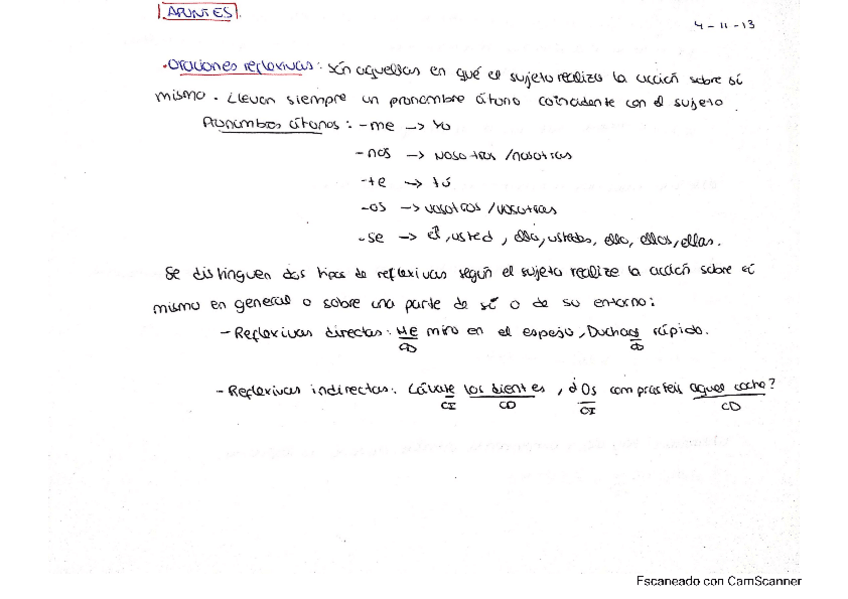 APUNTES
4-11-13
·Oraciones reflexivas: són aquellas en qué el sujeto realiza la acción sobre sí
mismo. Llevan siempre un pronombre átono coincidente con el sujeto.
Pronombres átonos: -me -> Yo
-nos -> nosotros/nosotras
-te -> tú
-os -> vosotros/vosotras
-se -> él, usted, ella, ustedes, ello, ellos, ellas.
Se distinguen dos tipos de reflexivas según el sujeto realize la acción sobre sí
mismo en general o sobre una parte de sí o de su entorno:
- Reflexivas directas: Me miro en el espejo, Duchaos rápido.
CD CD
- Reflexivas indirectas: Lávate los dientes, ¿Os comprasteis aquel coche?
CI CD CI CD
Escaneado con CamScanner